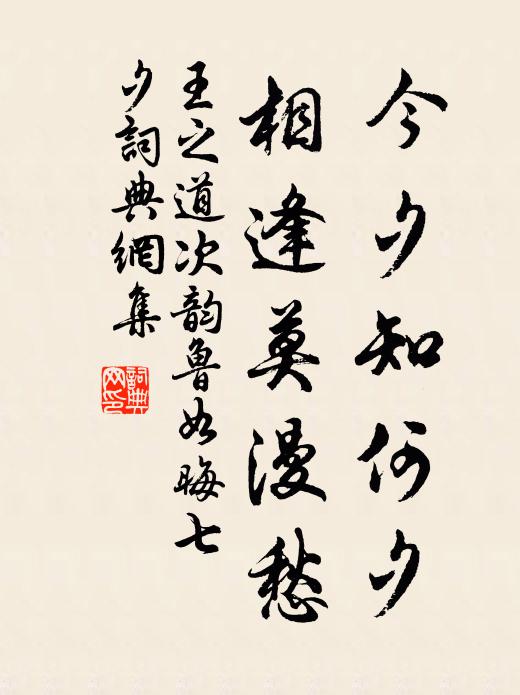 今夕知何夕
相逢莫漫愁
王之道次韵鲁如晦七
夕詞典網集
詞典網印